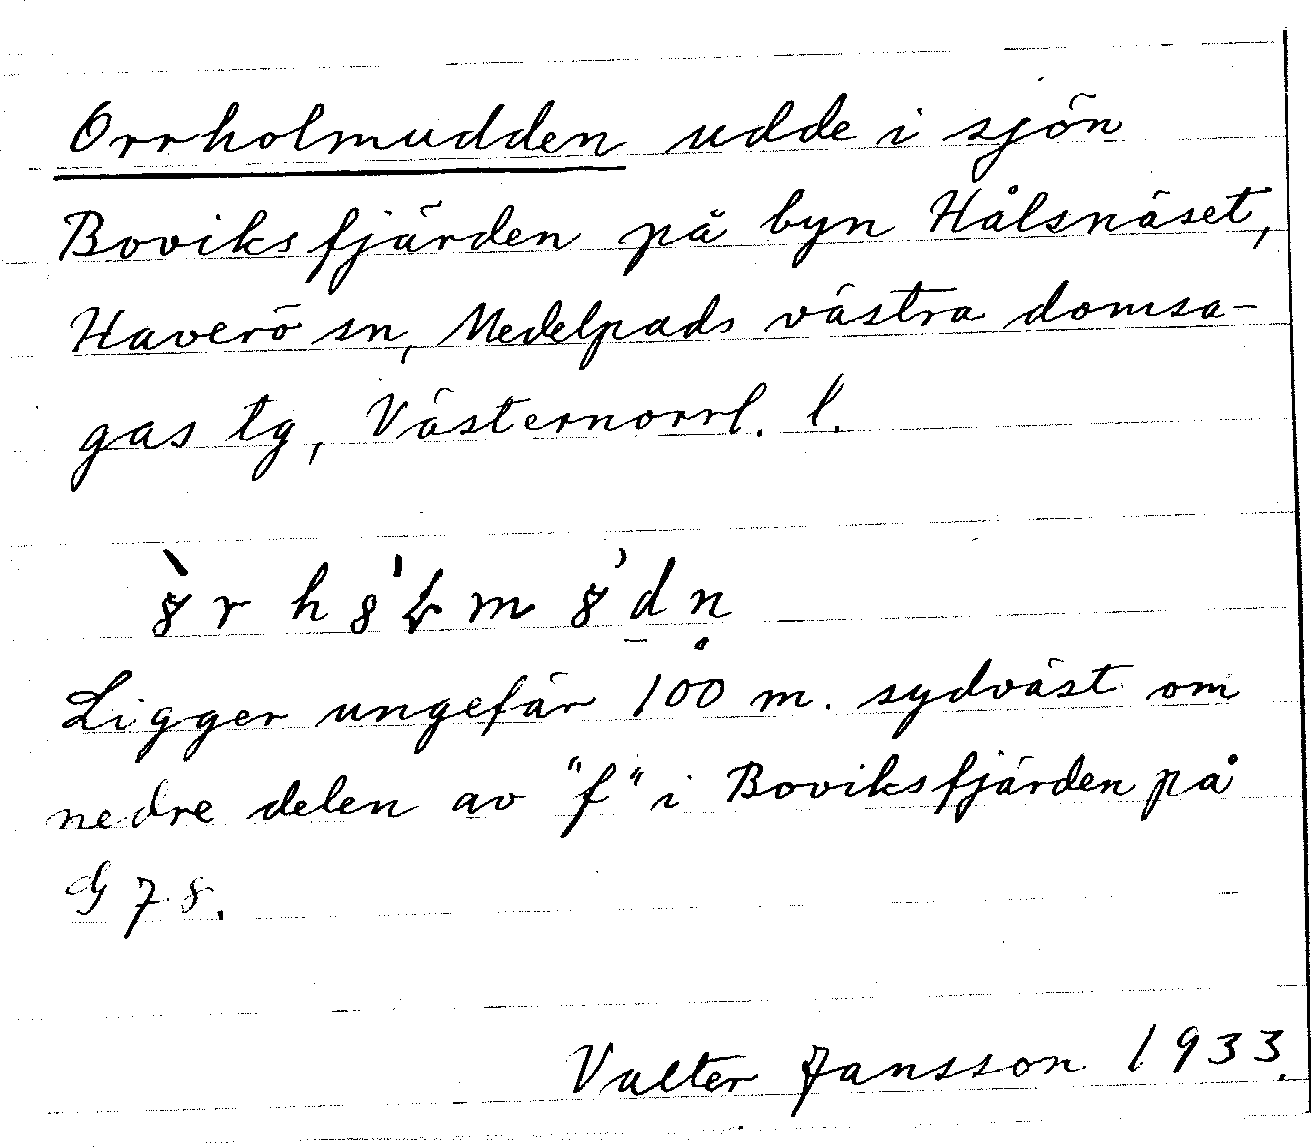 Orrholmudden udde i sjön
Boviksfjärden på byn Hålsnäset,
Haverö sn, Medelpads västra domsa-
gas tg, Västernorrl. l.
r h m d n
Ligger ungefär 100 m. sydväst om
nedre delen av "f" i Boviksfjärden på
G 78.
Valter Jansson 1933.